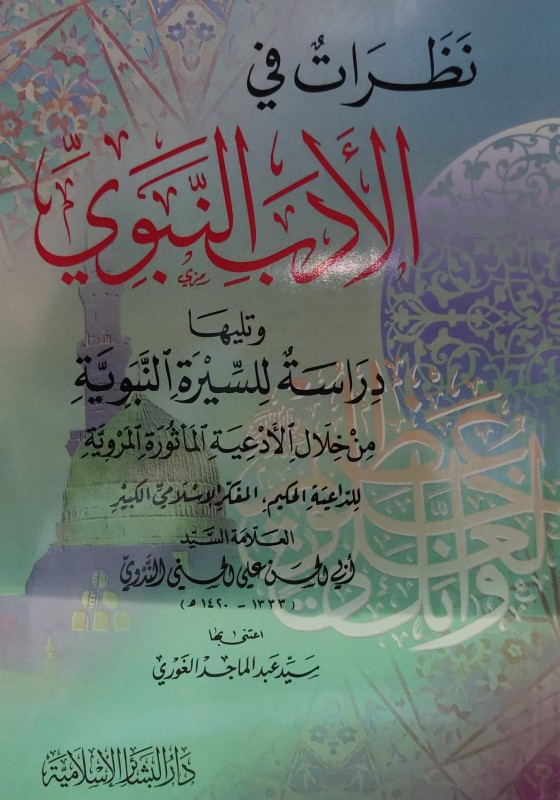 نَظَرَاتٌ في
الأَدَبِ النَّبَوِيِّ
وتليها
دِرَاسَةٌ لِلسِّيْرَةِ النَّبَوِيَّةِ
مِنْ خِلَالِ الأَدْعِيَةِ المَأثُورَةِ المَرْوِيَّةِ
للدّاعية الحكيم، المفكّر الإسلاميّ الكبير
العلّامة السّيّد
أبي الحسن علي الحسني النَّدْويّ
(١٣٣٣ - ١٤٢٠ هـ)
اعتنى بها
سيّد عبد الماجد الغَوري
دار البشائر الإسلامية
وإنك لعلى خلق عظيم